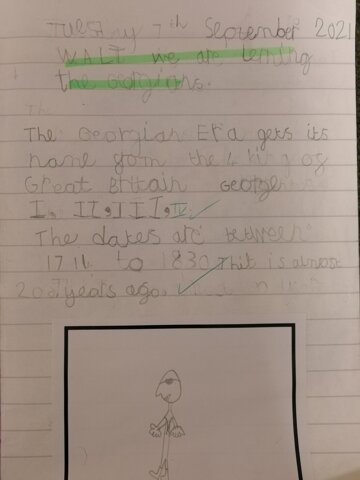 Tuesday 7th September 2021
WALT we are lerning
the Georgians.
The
The Georgian Era gets its
name from the 4 king of
Great Britain George
I, II, III, IV
The dates are between
1714 to 1830 This is almost
200 years ago.